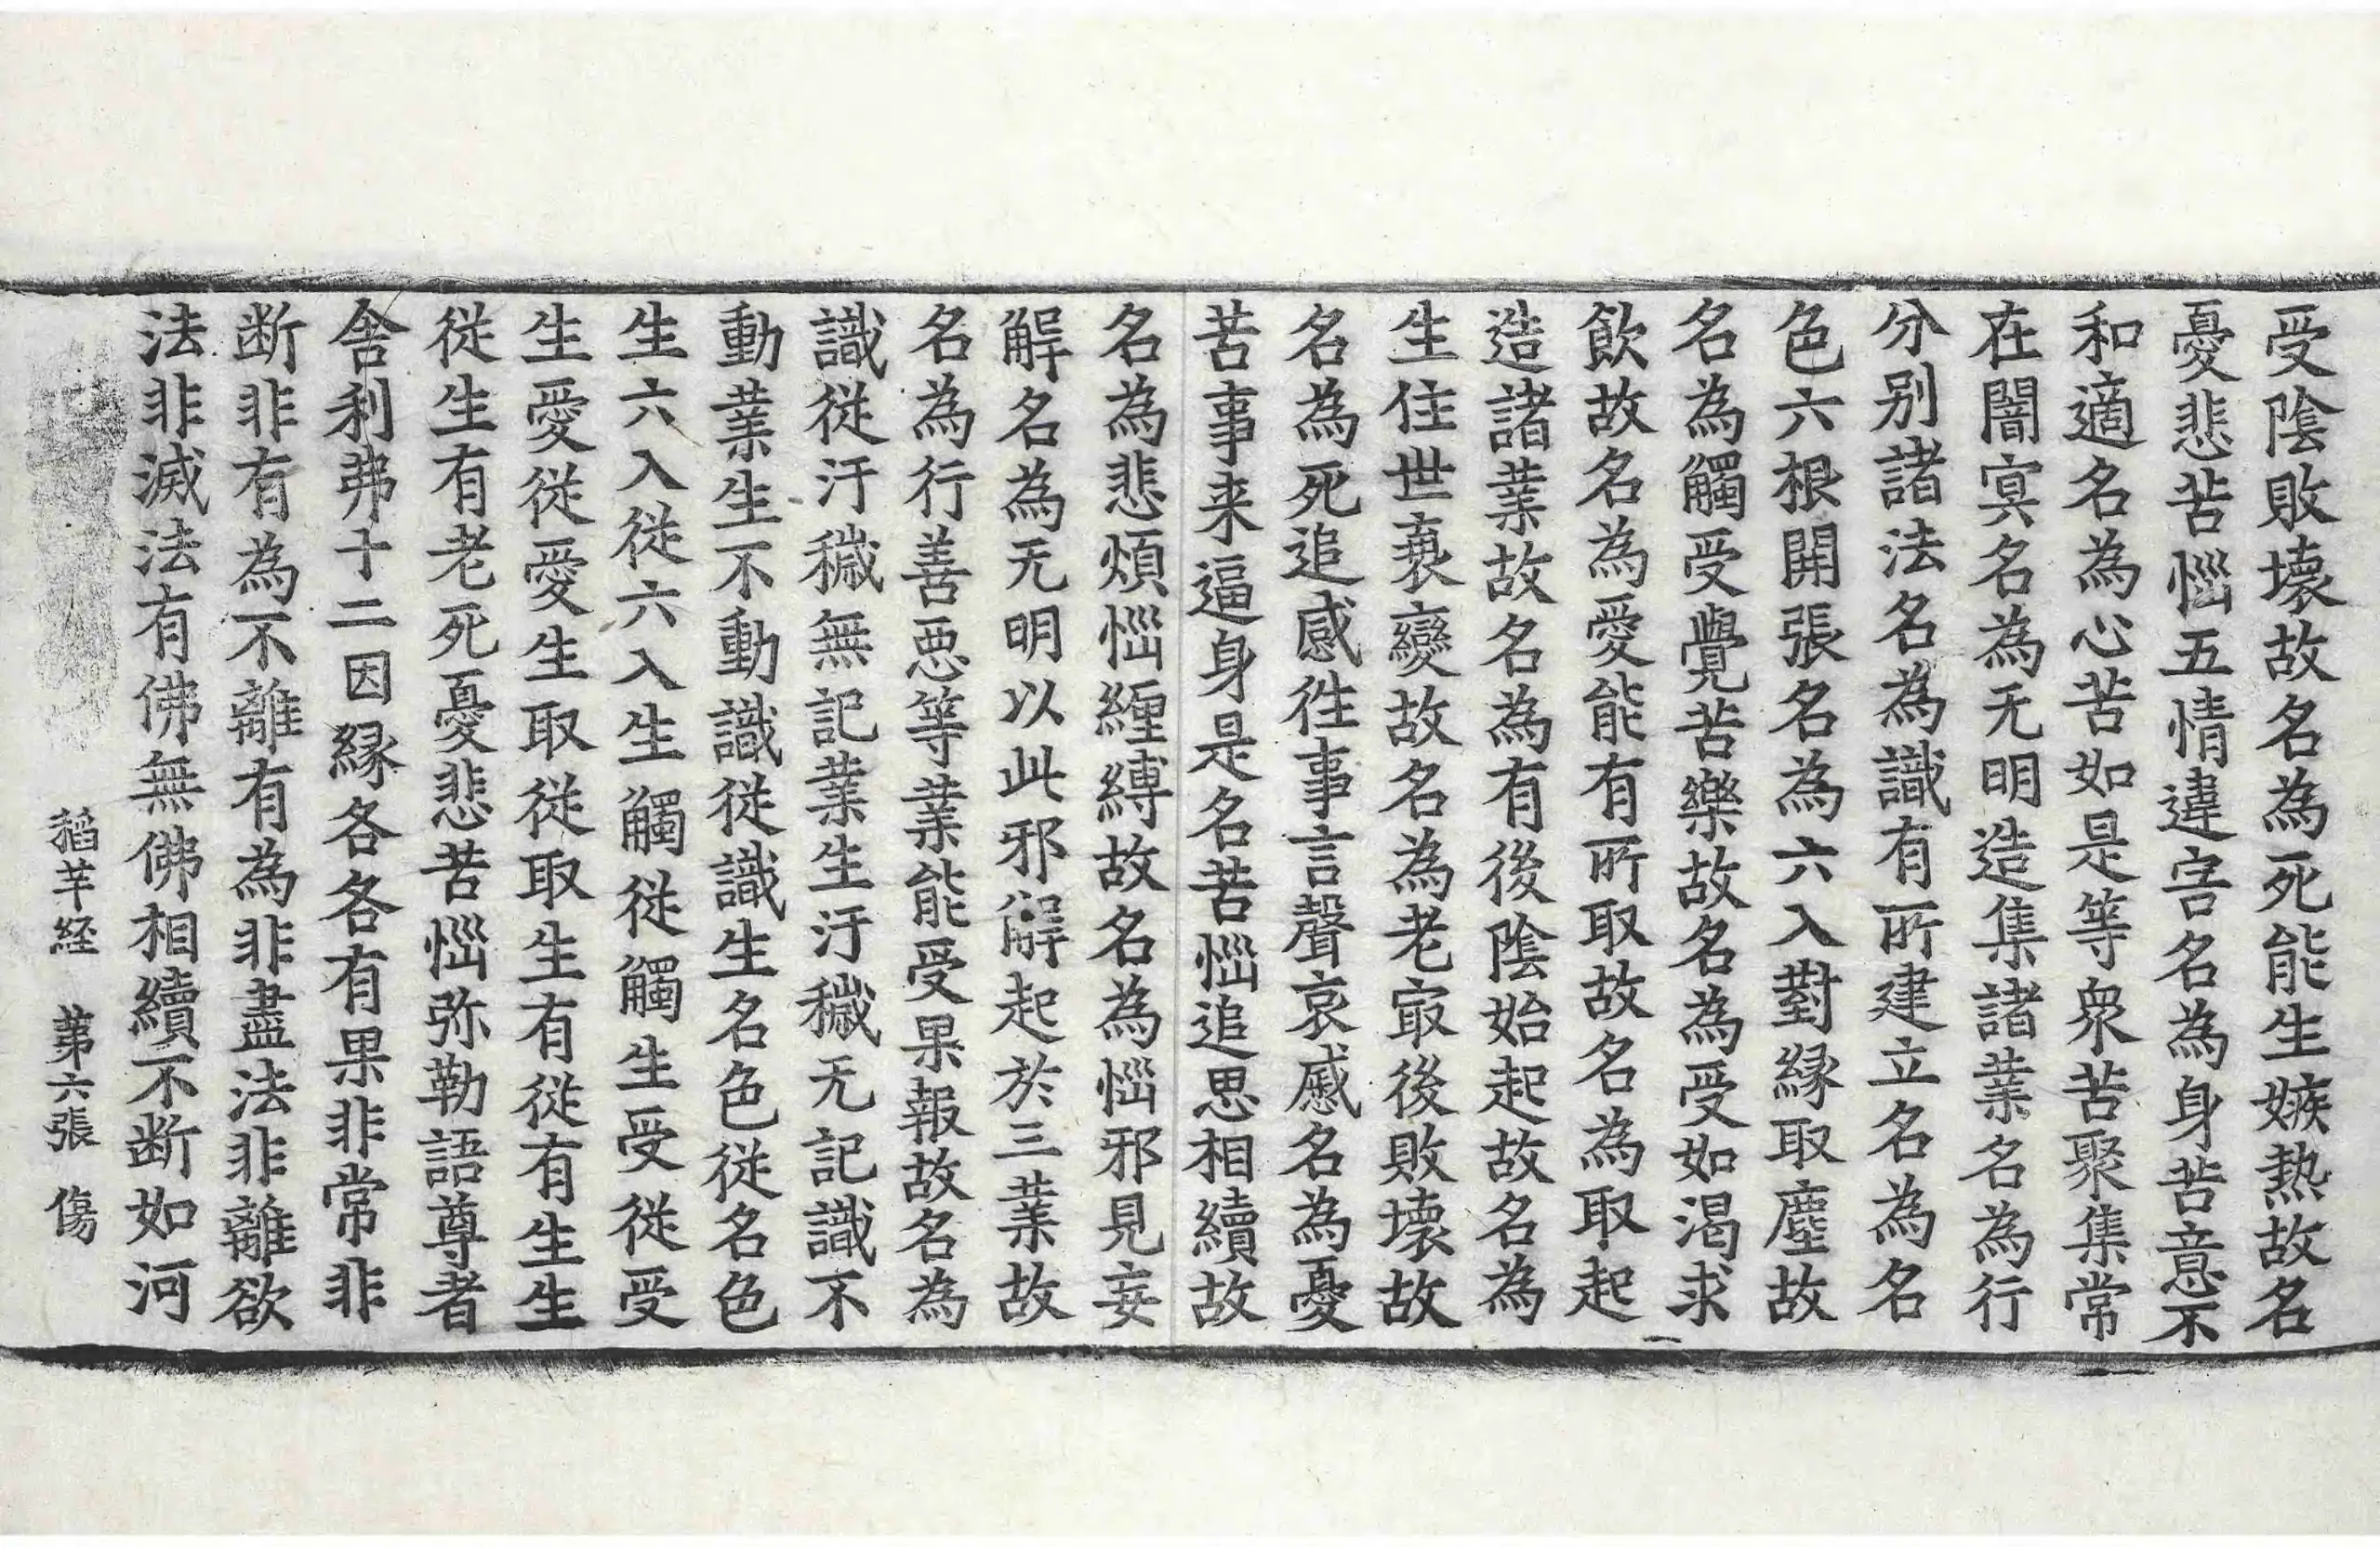 受陰敗壞故名為死能生嫉热故名
憂悲苦惱五情違害名為身苦意不
和適名為心苦如是等衆苦聚集常
在闇㝠名為无明造集諸業名為行
分别諸法名為識有所建立名為名
色六根開張名為六入對縁取塵故
名為觸受覺苦樂故名為受如渴求
飲故名為愛能有所取故名為取起
造諸業故名為有後陰始起故名為
生住世衰變故名為老㝡後敗壞故
名為死追感徃事言聲哀慼名為憂
苦事来逼身是名苦惱追思相續故
名為悲煩惱纏縛故名為惱邪見妄
解名為无明以此邪解起於三業故
名為行善惡等業能受果報故名為
識從汙穢無記業生汙穢无記識不
動業生不動識從識生名色從名色
生六入從六入生觸從觸生受從受
生愛從愛生取從取生有從有生生
從生有老死憂悲苦惱弥勒語尊者
舍利弗十二因縁各各有果非常非
断非有為不離有為非盡法非離欲
法非滅法有佛無佛相續不断如河
稻芉経 第六張 傷